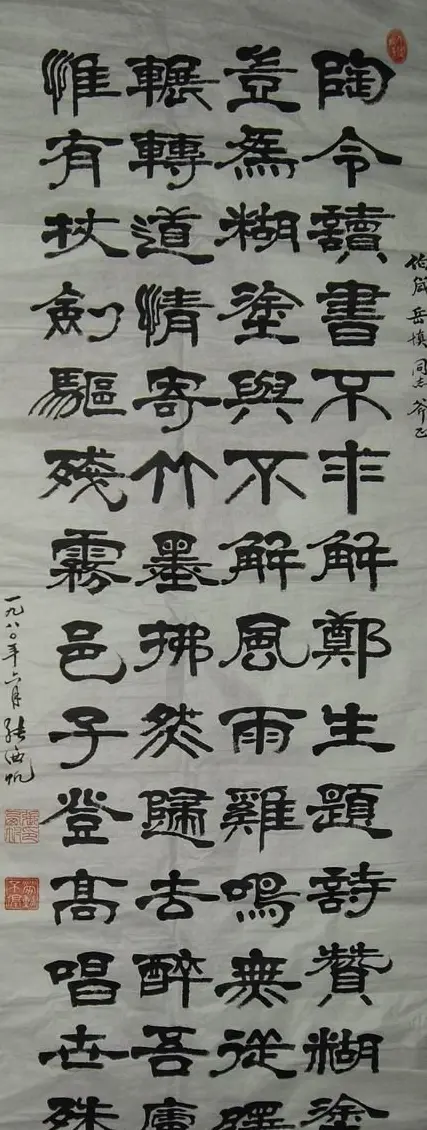 陶令讀書不求解鄭生題詩贊糊塗
豈為糊塗與不解風雨雞鳴無從
輾轉道情寄竹墨拂然歸去醉吾廬
惟有杖劍驅殘霧邑子登高唱世殊
伯箴岳慎同志斧正
一九八〇年六月張